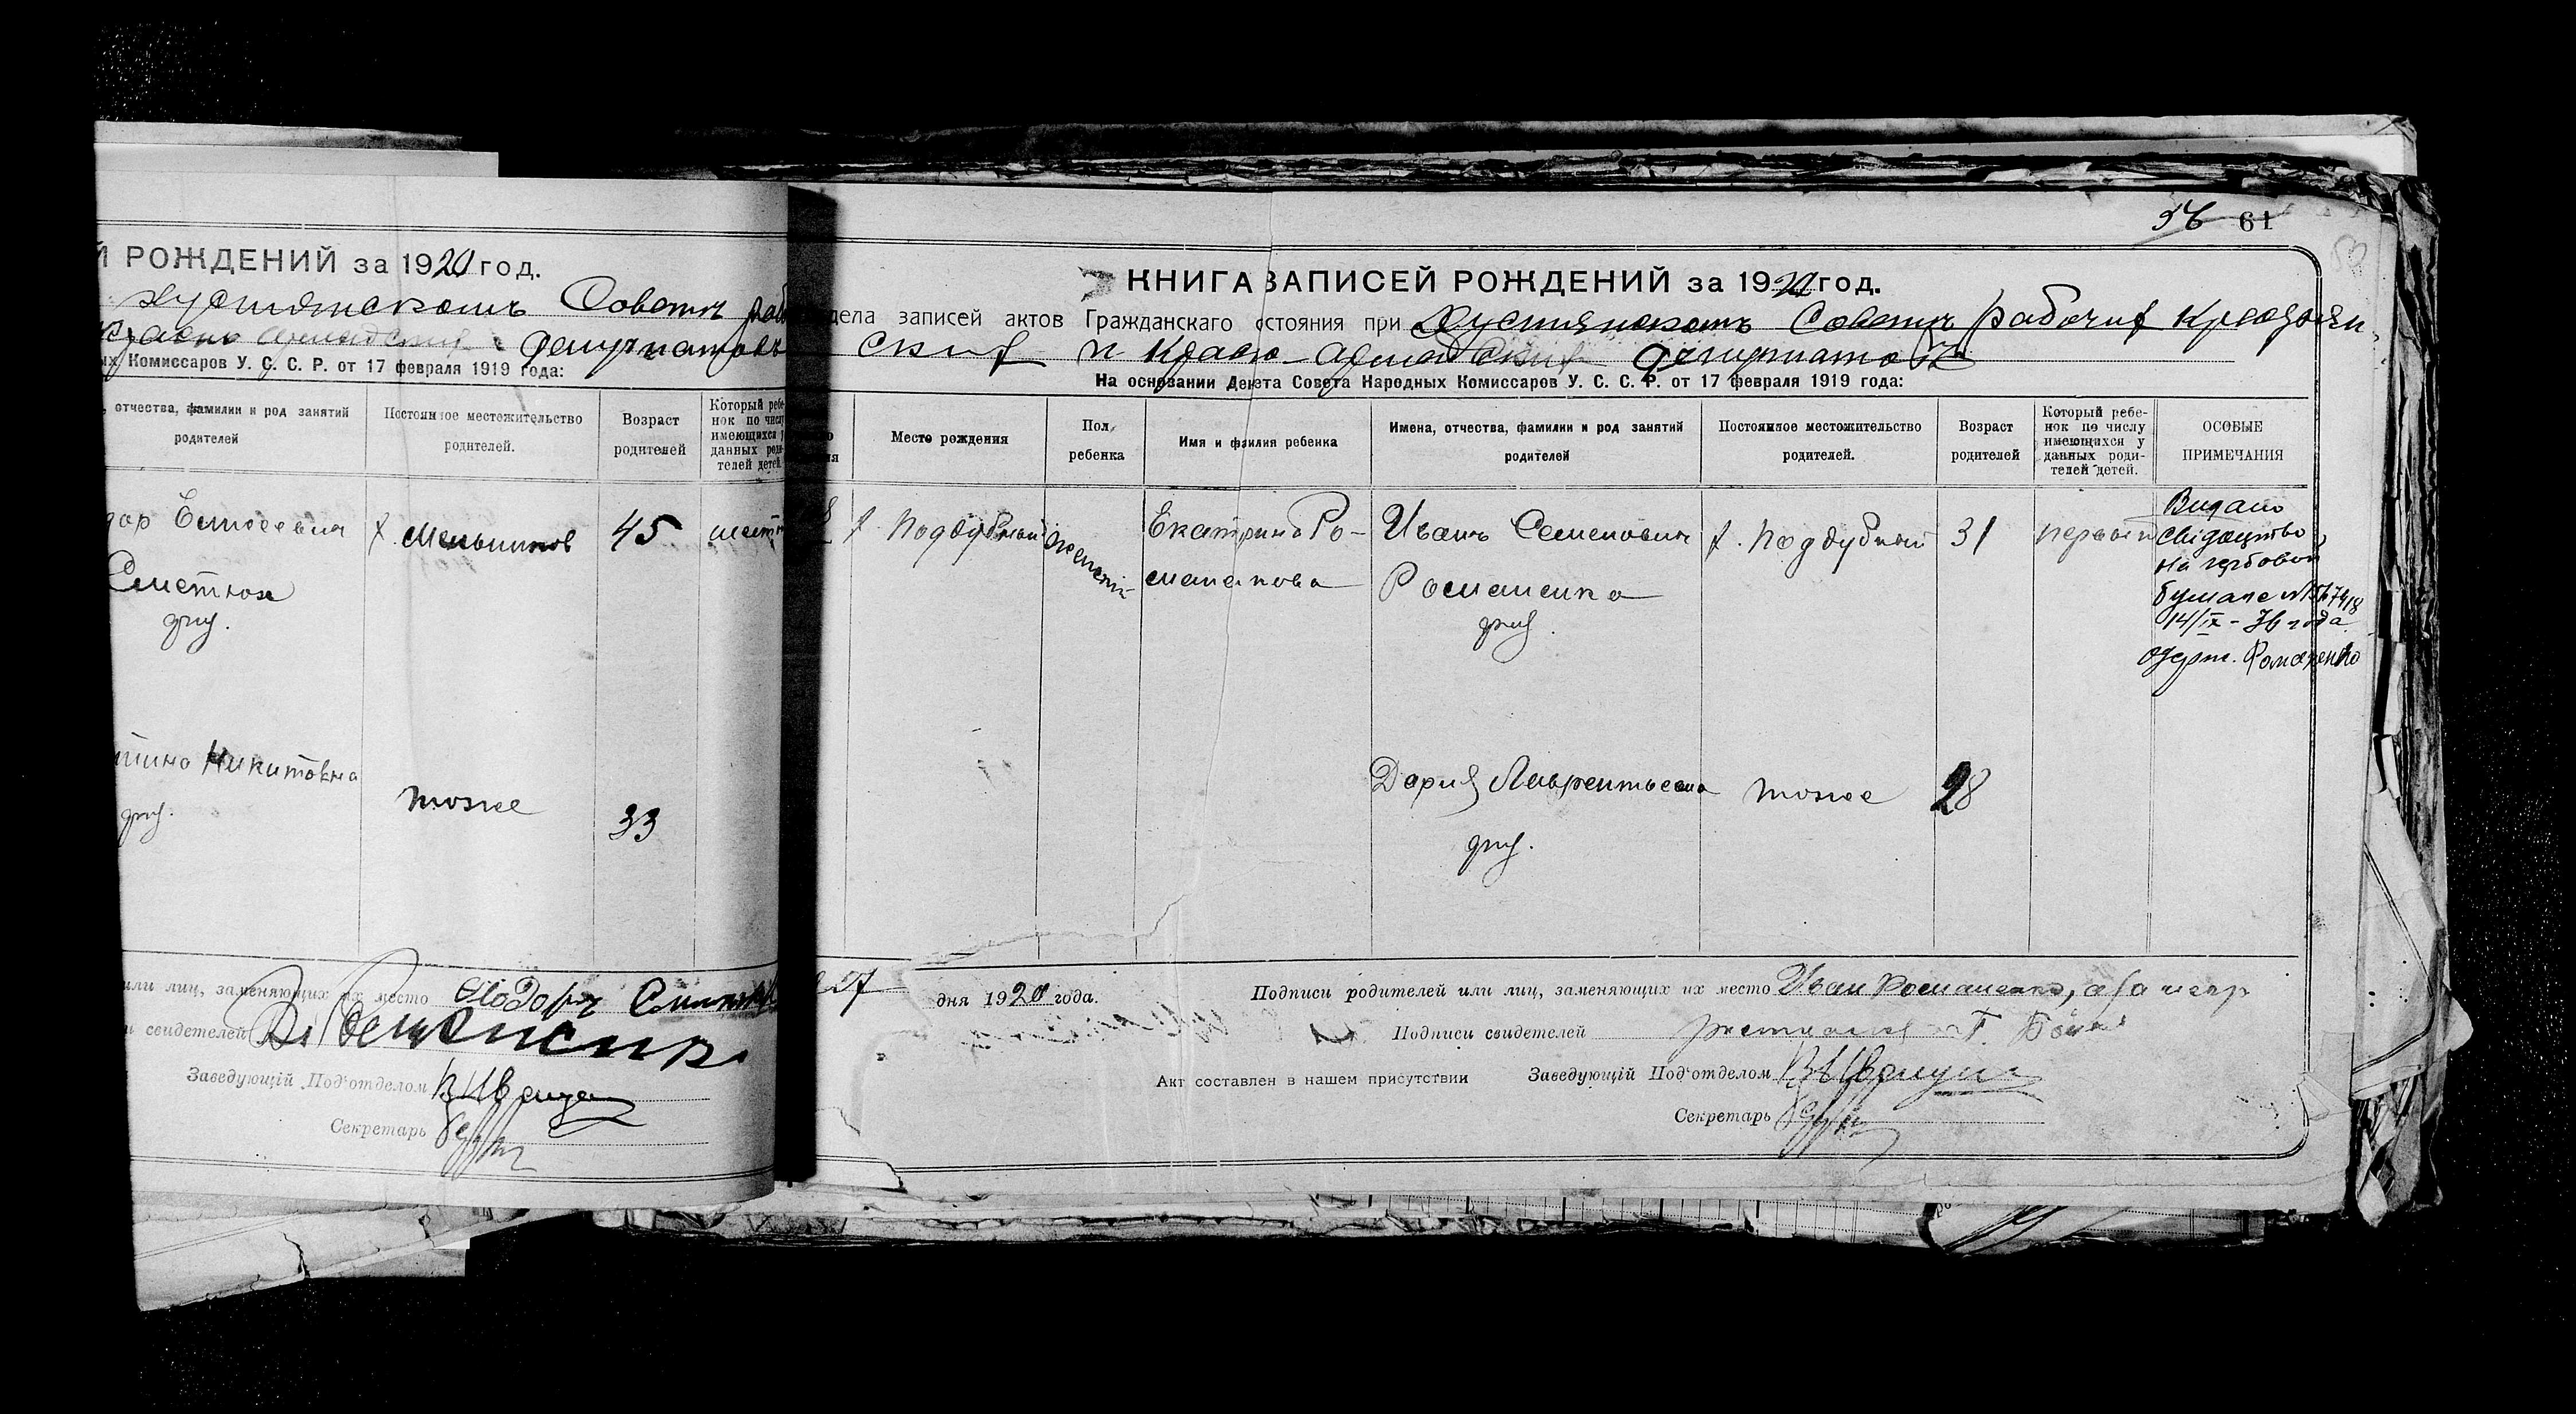 Й РОЖДЕНИЙ за 1920 год.
Хустянскомъ Советъ раб
Красно армейских депутатовъ
ых Комиссаров У. С. С. Р. от 17 февраля 1919 года:
, отчества, фамилии и род занятий родителей
Постоянное местожительство родителей.
Возраст родителей
Который ребе-
нок по числу
имеющихся у
данных роди-
телей детей.
х. Меньшиков
45
шест
дпу.
Никитовна
тоже
33
дпу.
или лиц, заменяющих их место
и свидетелей
Заведующій Под'отделом
Секретарь
56 61
КНИГА ЗАПИСЕЙ РОЖДЕНИЙ за 1920 год.
дела записей актов Гражданскаго состояния при Хустянскомъ Советъ рабочих крестьян-
ских и Красно-армейских депутатовъ
На основании Декрета Совета Народных Комиссаров У. С. С. Р. от 17 февраля 1919 года:
Место рождения
Пол ребенка
Имя и фамилия ребенка
Имена, отчества, фамилии и род занятий родителей
Постоянное местожительство родителей.
Возраст родителей
Который ребе-
нок по числу
имеющихся у
данных роди-
телей детей.
ОСОБЫЕ ПРИМЕЧАНИЯ
х. Поддубный
женск
Екатерина Ро-
маненкова
Иванъ Семеновичъ
Романенко
дпу.
х. Поддубный
31
первый
Видано
свідоцтво
на гербовой
бумаге
14/IX - 36 года
Романенко
Дария Лаврентьевна
дпу.
тоже
28
дня 1920 года.
Подписи родителей или лиц, заменяющих их место Иван Романенко, а за негр
Подписи свидетелей
Акт составлен в нашем присутствии
Заведующій Под'отделом
Секретарь